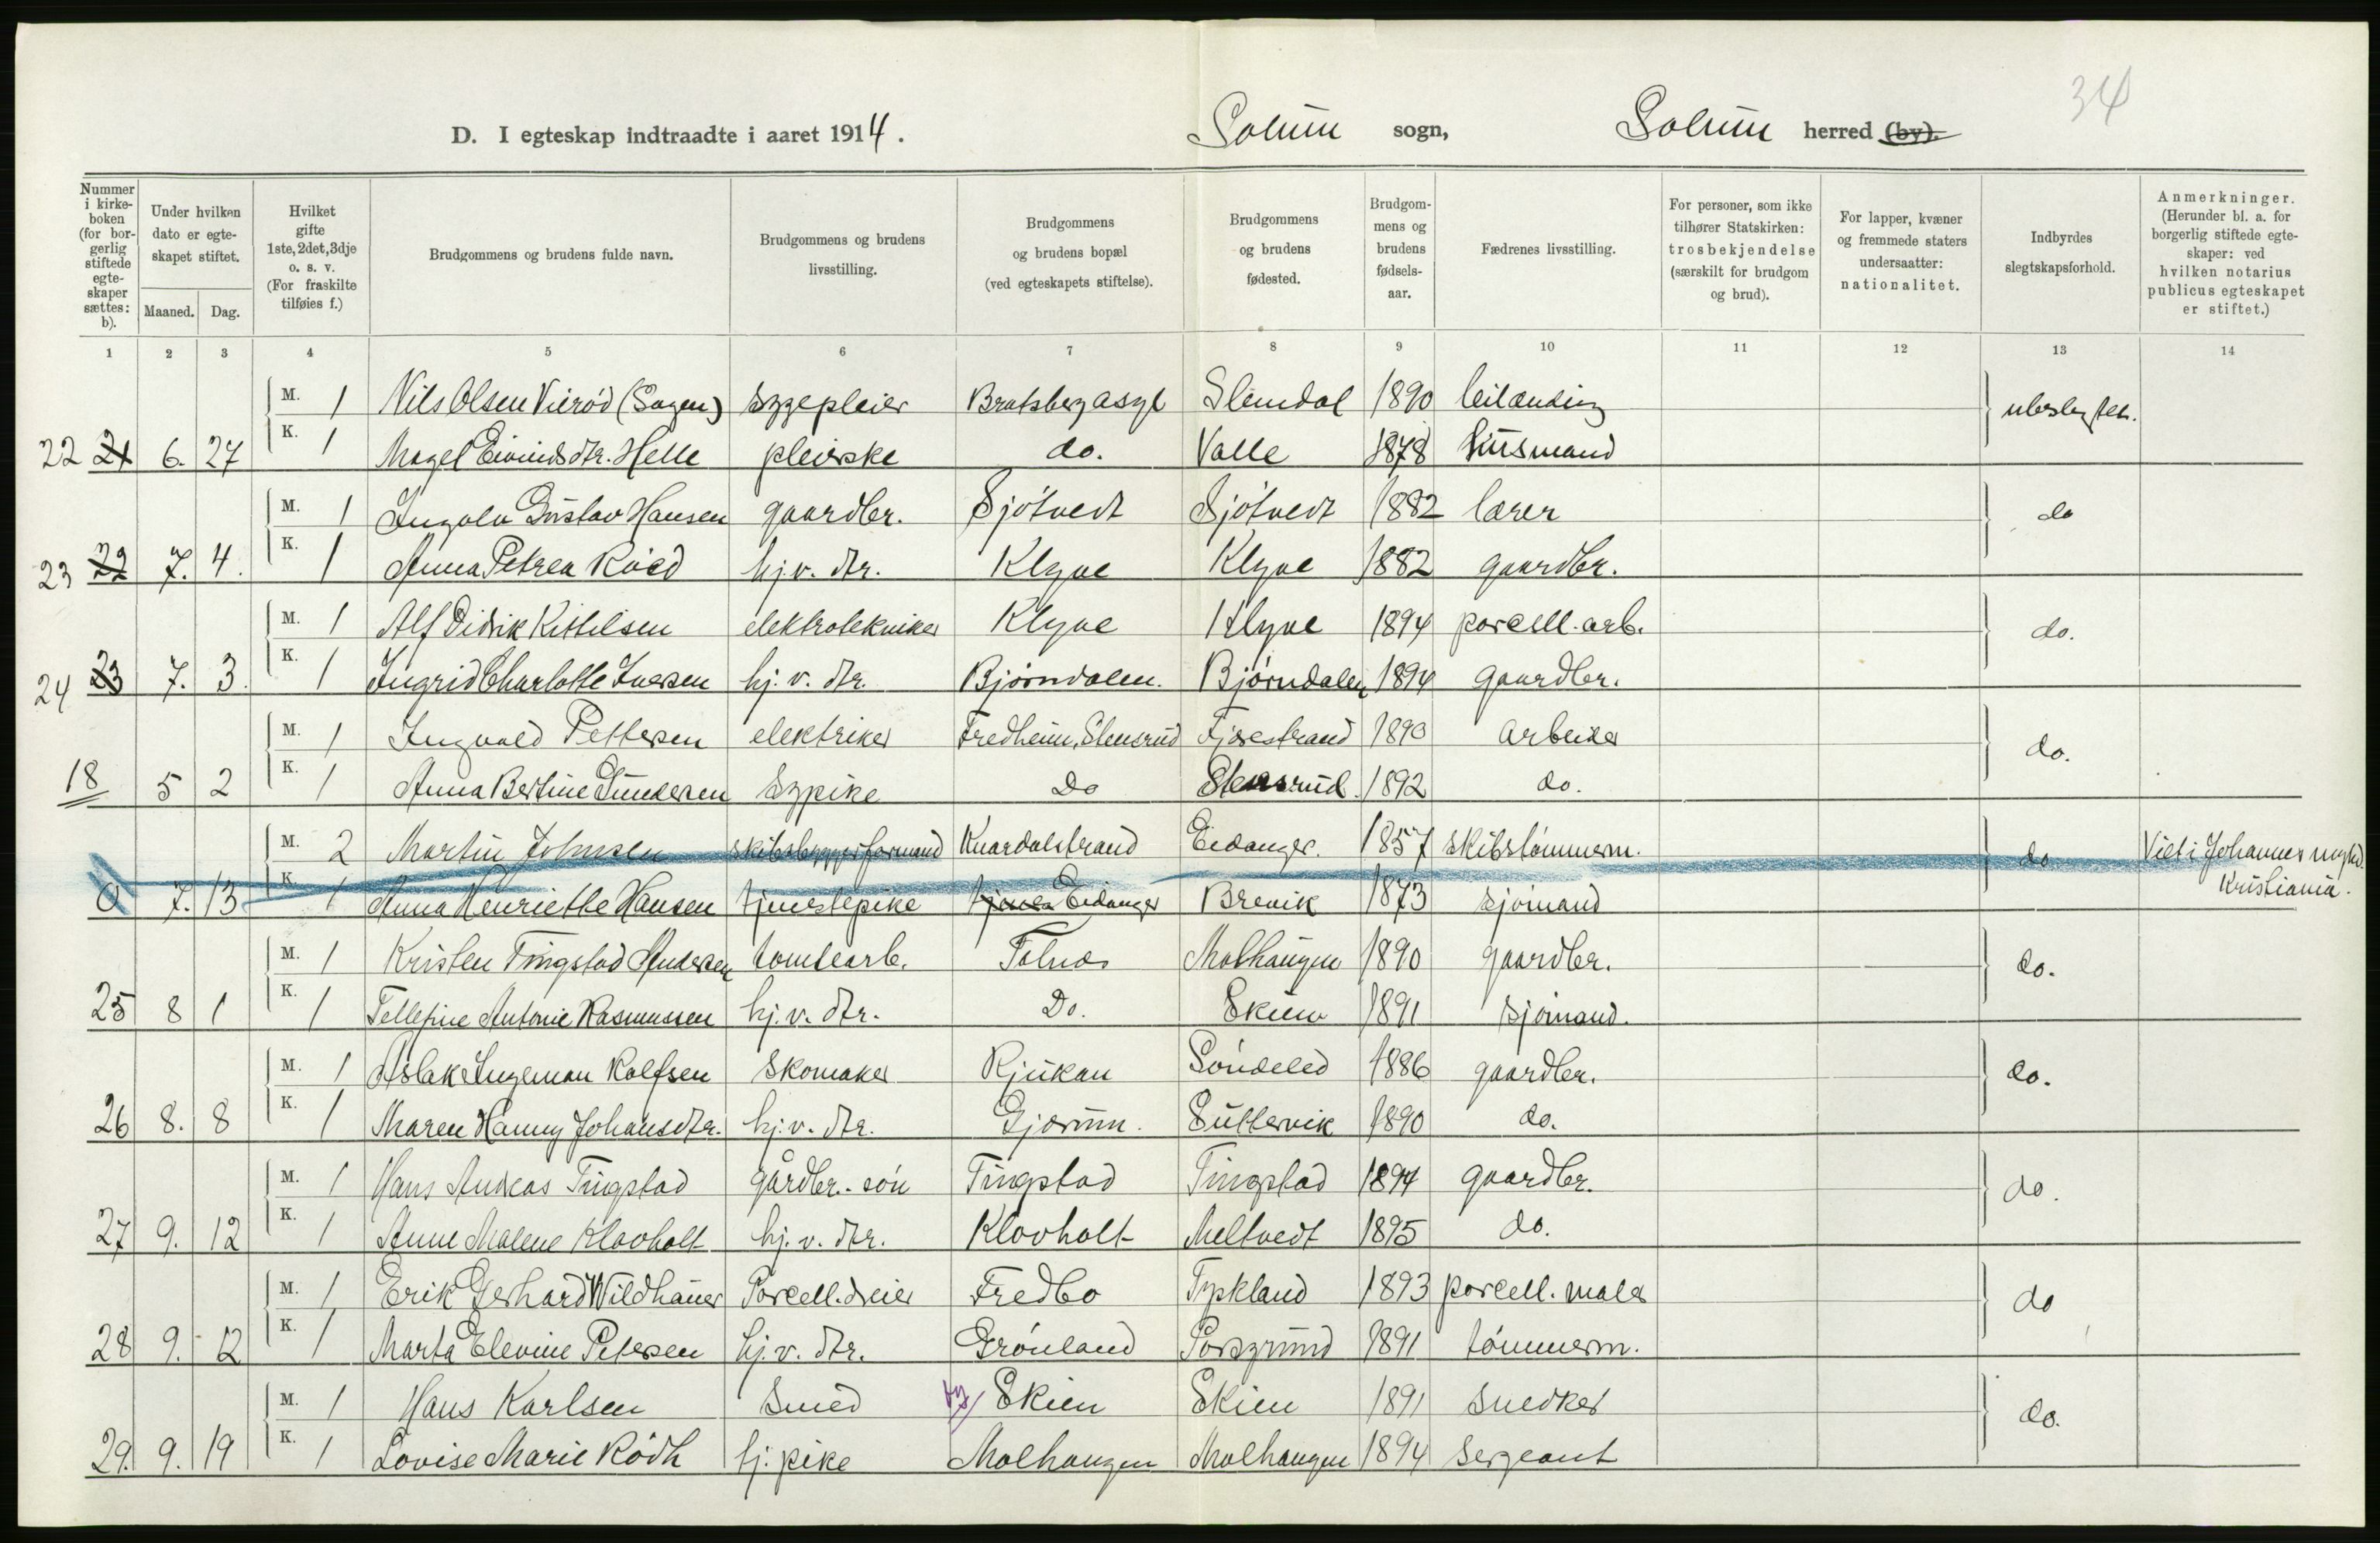 34
D. I egteskap indtraadte i aaret 1914. Solum sogn, Solum herred (by).
Nummer i kirke-boken (for bor-gerlig stiftede egte-skaper sættes: b). Under hvilken dato er egte-skapet stiftet. Maaned. Dag. Hvilket gifte 1ste, 2det, 3dje o. s. v. (For fraskilte tilføies f.) Brudgommens og brudens fulde navn. Brudgommens og brudens livsstilling. Brudgommens og brudens bopæl (ved egteskapets stiftelse). Brudgommens og brudens fødested. Brudgom-mens og brudens fødsels-aar. Fædrenes livsstilling. For personer, som ikke tilhører Statskirken: trosbekjendelse (særskilt for brudgom og brud). For lapper, kvæner og fremmede staters undersaatter: nationalitet. Indbyrdes slegtskapsforhold. Anmerkninger. (Herunder bl. a. for borgerlig stiftede egte-skaper: ved hvilken notarius publicus egteskapet er stiftet.)
1 2 3 4 5 6 7 8 9 10 11 12 13 14
M. 1 Nils Olsen Vierød (Sagen) sygepleier Bratsberg asyl Slemdal 1890 leilænding ubeslegtet.
22 21 6. 27 K. 1 Margel Eivindsdtr. Helle pleierske do. Valle 1878 husmand
M. 1 Ingolv Gustav Hansen gaardbr. Sjøtvedt Sjøtvedt 1882 lærer do
23 22 7. 4. K. 1 Anna Petrea Röed hj.v. dtr. Klyve Klyve 1882 gaardbr.
M. 1 Alf Didrik Kittilsen elektrotekniker Klyve Klyve 1894 porcell. arb. do.
24 23 7. 3. K. 1 Ingrid Charlotte Iversen hj. v. dtr. Bjørndalen. Bjørndalen 1894 gaardbr.
M. 1 Ingvald Pettersen elektriker Fredheim, Stensrud Fjærestrand 1890 arbeider do.
18 5 2 K. 1 Anna Bertine Gundersen sypike Do Stensrud 1892 do.
M. 2 Martin Johnsen skibsbyggerformand Knardalstrand Eidanger. 1857 skibstømmerm. do Viet i Johannes mgh. Kristiania.
0 7. 13 K. 1 Anna Henriette Hansen tjenestepike Eidanger Brevik 1873 sjømand
M. 1 Kristen Tingstad Andersen tomtearb. Tolnæs Mælhaugen 1890 gaardbr. do.
25 8 1 K. 1 Tellefine Antonie Rasmussen hj. v. dtr. Do. Skien 1891 sjømand.
M. 1 Aslak Ingeman Rolfsen skomaker Rjukan Söndeled 1886 gaardbr. do.
26 8. 8 K. 1 Maren Hanny Johansdtr. hj. v. dtr. Gjærum. Luttervik 1890 do.
M. 1 Hans Andreas Tingstad gårdbr.-søn Tingstad Tingstad 1894 gaardbr. do.
27 9. 12 K. 1 Anne Malene Klovholt hj. v. dtr. Klovholt Meltvedt 1895 do.
M. 1 Erik Gerhard Wildhauer Porcell. dreier Fredbo Tyskland 1893 porcell. maler do
28 9. 12 K. 1 Marta Elevine Petersen hj. v. dtr. Grönland Porsgrund 1891 tømmerm.
M. 1 Hans Karlsen Smed by Skien Skien 1891 snedker do.
29. 9. 19 K. 1 Lovise Marie Rödh tj. pike Mælhaugen Mælhaugen 1894 sergeant